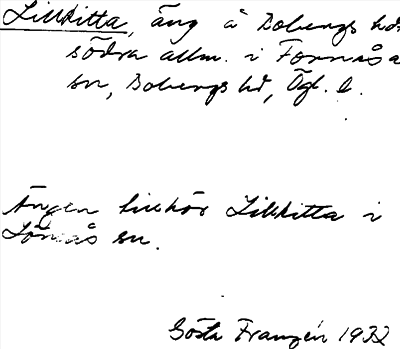 Lillkitta, äng å Bobergs hds
södra allm. i Fornåsa
sn, Bobergs hd, Ögl. l.
Ängen tillhör Lillkitta i
Lönsås sn.
Gösta Franzén 1932